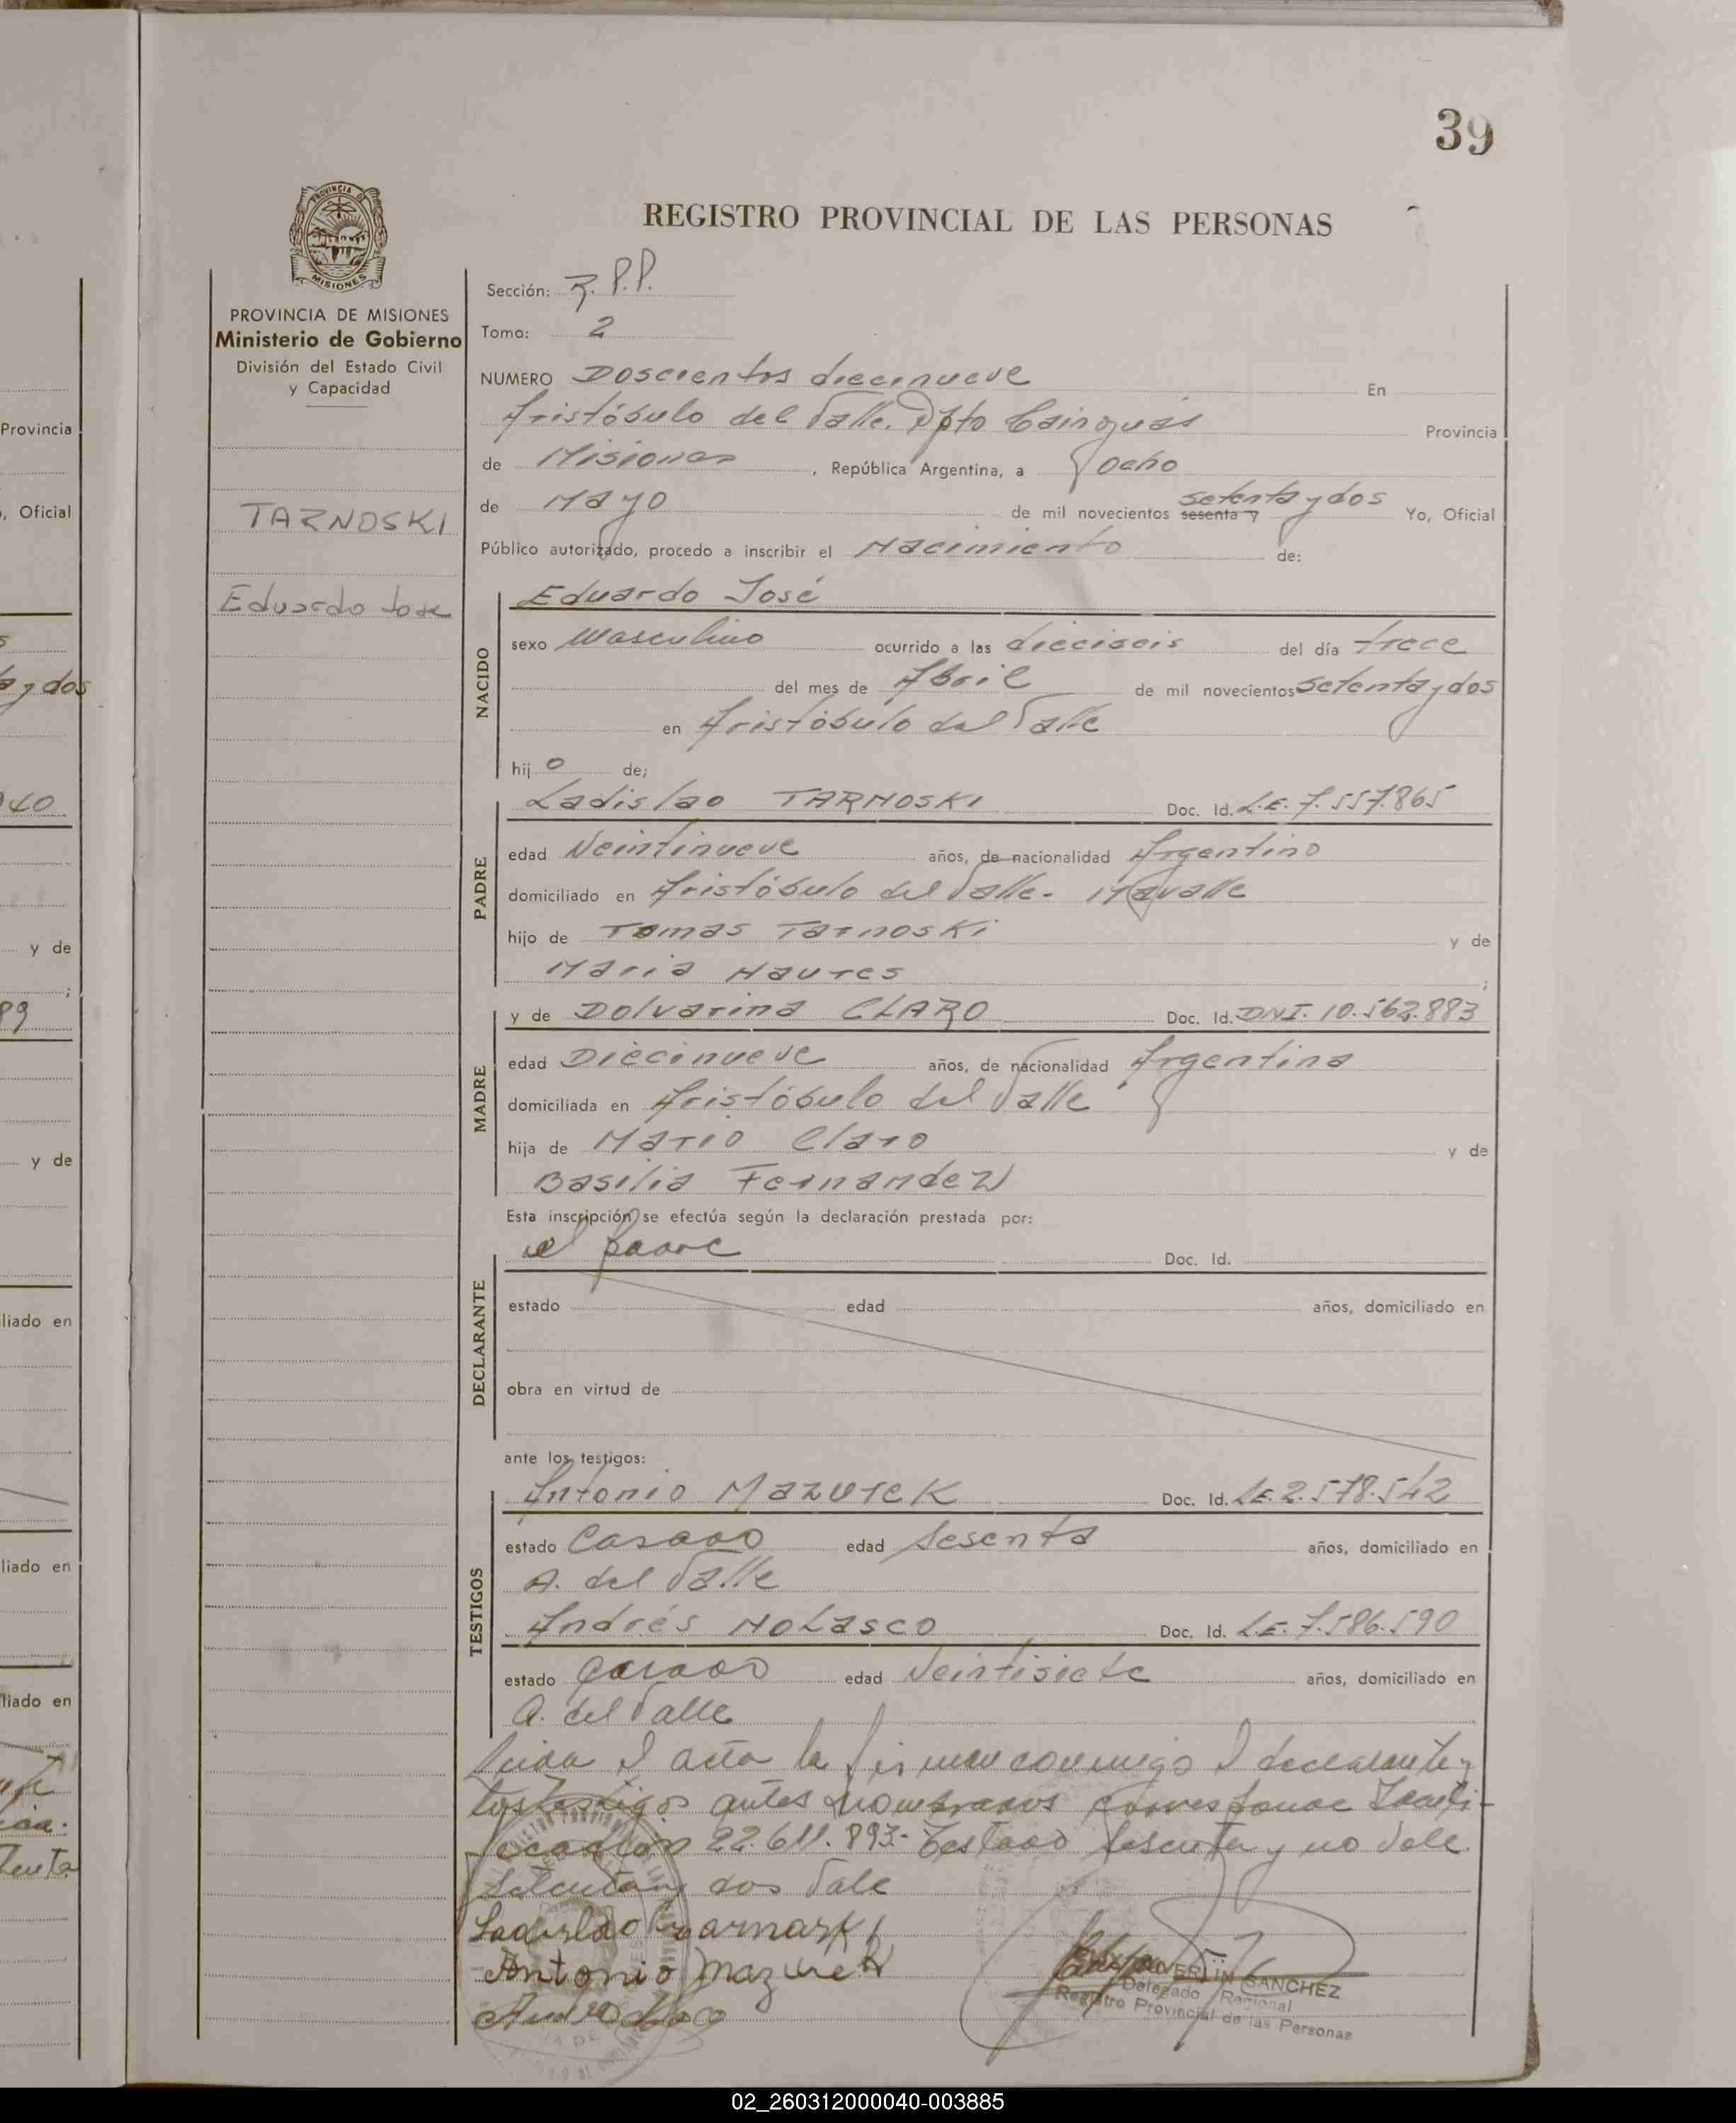 39
REGISTRO PROVINCIAL DE LAS PERSONAS
PROVINCIA DE MISIONES
Ministerio de Gobierno
División del Estado Civil
y Capacidad
TARNOSKI
Eduardo Jose
Sección: R.P.P.
Tomo: 2
NUMERO Doscientos diecinueve En
Aristóbulo del Valle. Dpto Cainguás Provincia
de Misiones, República Argentina, a ocho
de Mayo de mil novecientos sesenta y setenta y dos Yo, Oficial
Público autorizado, procedo a inscribir el Nacimiento de:
NACIDO
Eduardo José
sexo Masculino ocurrido a las dieciseis del día trece
del mes de Abril de mil novecientos setenta y dos
en Aristóbulo del Valle
hijo de;
PADRE
Ladislao TARNOSKI Doc. Id. L.E. 7.557.865
edad Veintinueve años, de nacionalidad Argentino
domiciliado en Aristóbulo del Valle.
hijo de Tomas Tarnoski y de
Maria ;
MADRE
y de Dolvarina CLARO Doc. Id. DNI. 10.562.883
edad Diecinueve años, de nacionalidad Argentina
domiciliada en Aristóbulo del Valle
hija de Mario Claro y de
Basilia Fernandez
Esta inscripción se efectúa según la declaración prestada por:
DECLARANTE
el padre Doc. Id.
estado edad años, domiciliado en
obra en virtud de
ante los testigos:
TESTIGOS
Antonio Mazurek Doc. Id. L.E. 2.578.542
estado Casado edad sesenta años, domiciliado en
A. del Valle
Andrés Nolasco Doc. Id. L.E. 7.586.590
estado Casado edad Veintisiete años, domiciliado en
A. del Valle
Leida el acta la firman conmigo el declarante y
los testigos antes nombrados corresponde Identi-
ficación 22.611.893- Testado sesenta y no Vale.
Setenta y dos Vale
Ladislao Tarnoski
Antonio Mazurek
SANCHEZ
Delegado Regional
Registro Provincial de las Personas
Provincia
, Oficial
y dos
y de
;
y de
liado en
liado en
liado en
02_260312000040-003885